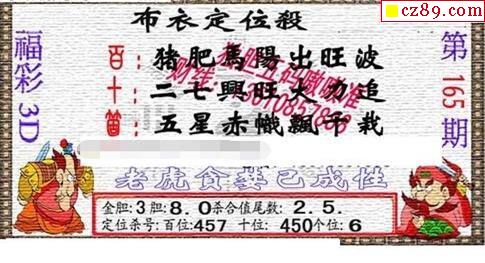 cz89.com
布衣定位殺
福彩3D
第165期
百：猪肥馬陽出旺波
十：二七興旺火力追
個：五星赤幟飄千栽
老虎貪婪已成性
金胆:3 胆:8.0杀合值尾数:2.5.
定位杀号:百位:457 十位:450个位:6